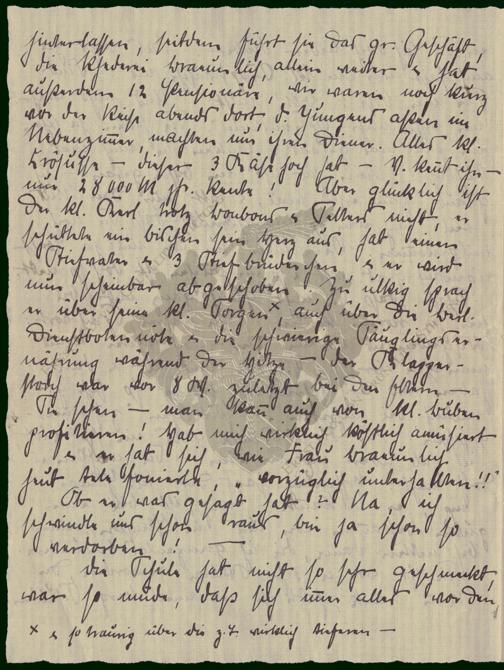 hinterlassen, seitdem führt sie das gr. Geschäft,
die Rhederei Braeunlich, allein weiter u. hat
außerdem 12 Pensionäre, wir waren noch kurz
vor der Reise abends dort, d. Jungens aßen im
Nebenzimmer, machten uns ihren Diener. Alles kl.
Krösusse – dieser 3 Käse hoch hat – V. kennt ihn –
nur 28000 M jhr. Rente! Aber glücklich ist
der kl. Kerl trotz Bonbons u. nicht, er
schüttete ein bischen sein Herz aus, hat einen
Stiefvater u. 3 Stiefbrüderchen u. er wird
nun scheinbar abgeschoben. Zu ulkig sprach
er über seine kl. Sorgen x, auch über die Berl.
Dienstbotennöte u. die schwierige Säuglingser-
nährung während der Hitze – der Klapper-
storch war vor 8 W. zuletzt bei den Eltern –
Sie sehen – man kann auch von kl. Buben
profitieren! Hab mich wirklich köstlich amüsiert
u. er hat sich, wie Frau Braeunlich
heut telefonierte, „vorzüglich unterhalten!!"
Ob er was gesagt hat? Na, ich
schwindle uns schon raus, bin ja schon so
verdorben! –
Die Schule hat nicht so sehr geschmeckt
war so müde, daß sich immer alles vor den
x u. so traurig über die z. T. wirklich tieferen –